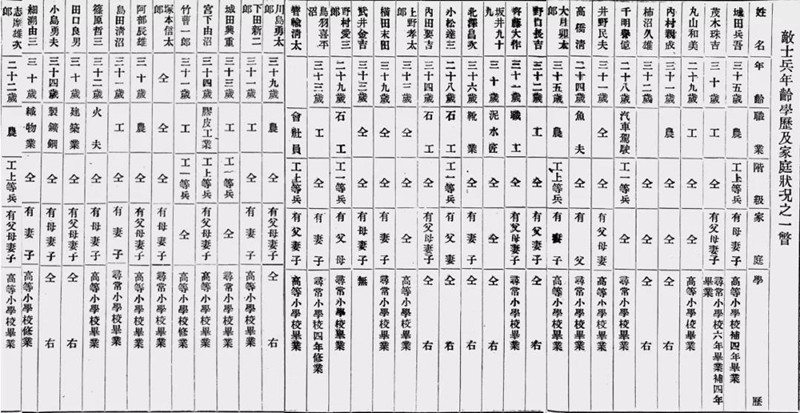 敵士兵年齡學歷及家庭狀況之一瞥
姓名 年齡 職業 階級 家庭 學歷
城田兵吾 三十五歲 農 工上等兵 有母妻子 高等小學校補四年畢業
茂木珠吉 三十歲 工 仝 有父母妻子 尋常小學校六年畢業補四年畢業
丸山和美 二十九歲 工 仝 有妻子 高等小學校畢業
內村親成 三十一歲 農 仝 有父母妻子 仝右
柿沼久雄 三十二歲 仝 仝 仝 仝右
千明譽 二十八歲 汽車駕駛 工一等兵 仝 尋常小學校畢業
井野民夫 三十一歲 仝 仝 有父母妻 高等小學校畢業
高橋清 二十四歲 魚夫 仝 有父 尋常小學校畢業
大月卯太郎 三十五歲 農 工上等兵 有妻子 高等小學校畢業
野口長吉 三十二歲 工 仝 有父妻子 仝右
齊藤大作 三十一歲 職工 仝 有父母妻子 尋常小學校畢業
坂井九十九 三十歲 泥水匠 仝 仝 仝右
北澤昌次 三十六歲 靴業 仝 有妻子 仝右
小松達三 二十八歲 石工 工一等兵 有父妻 仝右
內田要吉 三十四歲 石工 仝 有父母妻子 仝右
上野孝太郎 三十三歲 仝 仝 仝 高等小學校畢業
橫田末田 三十九歲 仝 仝 有妻子 尋常小學校畢業
武井金吉 三十三歲 仝 仝 有母妻子 無
野村愛三郎 二十九歲 石工 工一等兵 有父母 尋常小學校畢業
鳥羽喜平沼 三十三歲 工 仝 有妻子 尋常小學校四年修業
菅輪清太 會社員 工上等兵 有父妻子 高等小學校畢業
川島勇太郎 三十九歲 農 仝 有父母妻子 仝右
下田新二 三十一歲 工 仝 有妻子 高等小學校畢業
城田興重 三十三歲 工 工一等兵 仝 尋常小學校畢業
宮下由沼 三十四歲 膠皮工業 工上等兵 有父妻子 尋常小學校畢業
竹曹一郎 三十一歲 工 工一等兵 有妻 高等小學校修業
塚本信太郎 仝 仝 仝 有父母妻子 高等小學校畢業
阿部辰雄 三十歲 農 仝 有父母妻子 高等小學校畢業
島田清沼 三十一歲 工 仝 有妻子 尋常小學校畢業
篠原哲三 三十二歲 火夫 仝 有母妻子 高等小學校畢業
田口良男 三十歲 建築業 仝 有父母妻子 仝右
小島勇夫 三十四歲 製鑄鋼 仝 有父母妻子 仝右
細淵由三 三十歲 織物業 仝 有妻子 高等小學校修業
志摩雄次郎 二十二歲 農 工上等兵 有父母妻子 高等小學校畢業